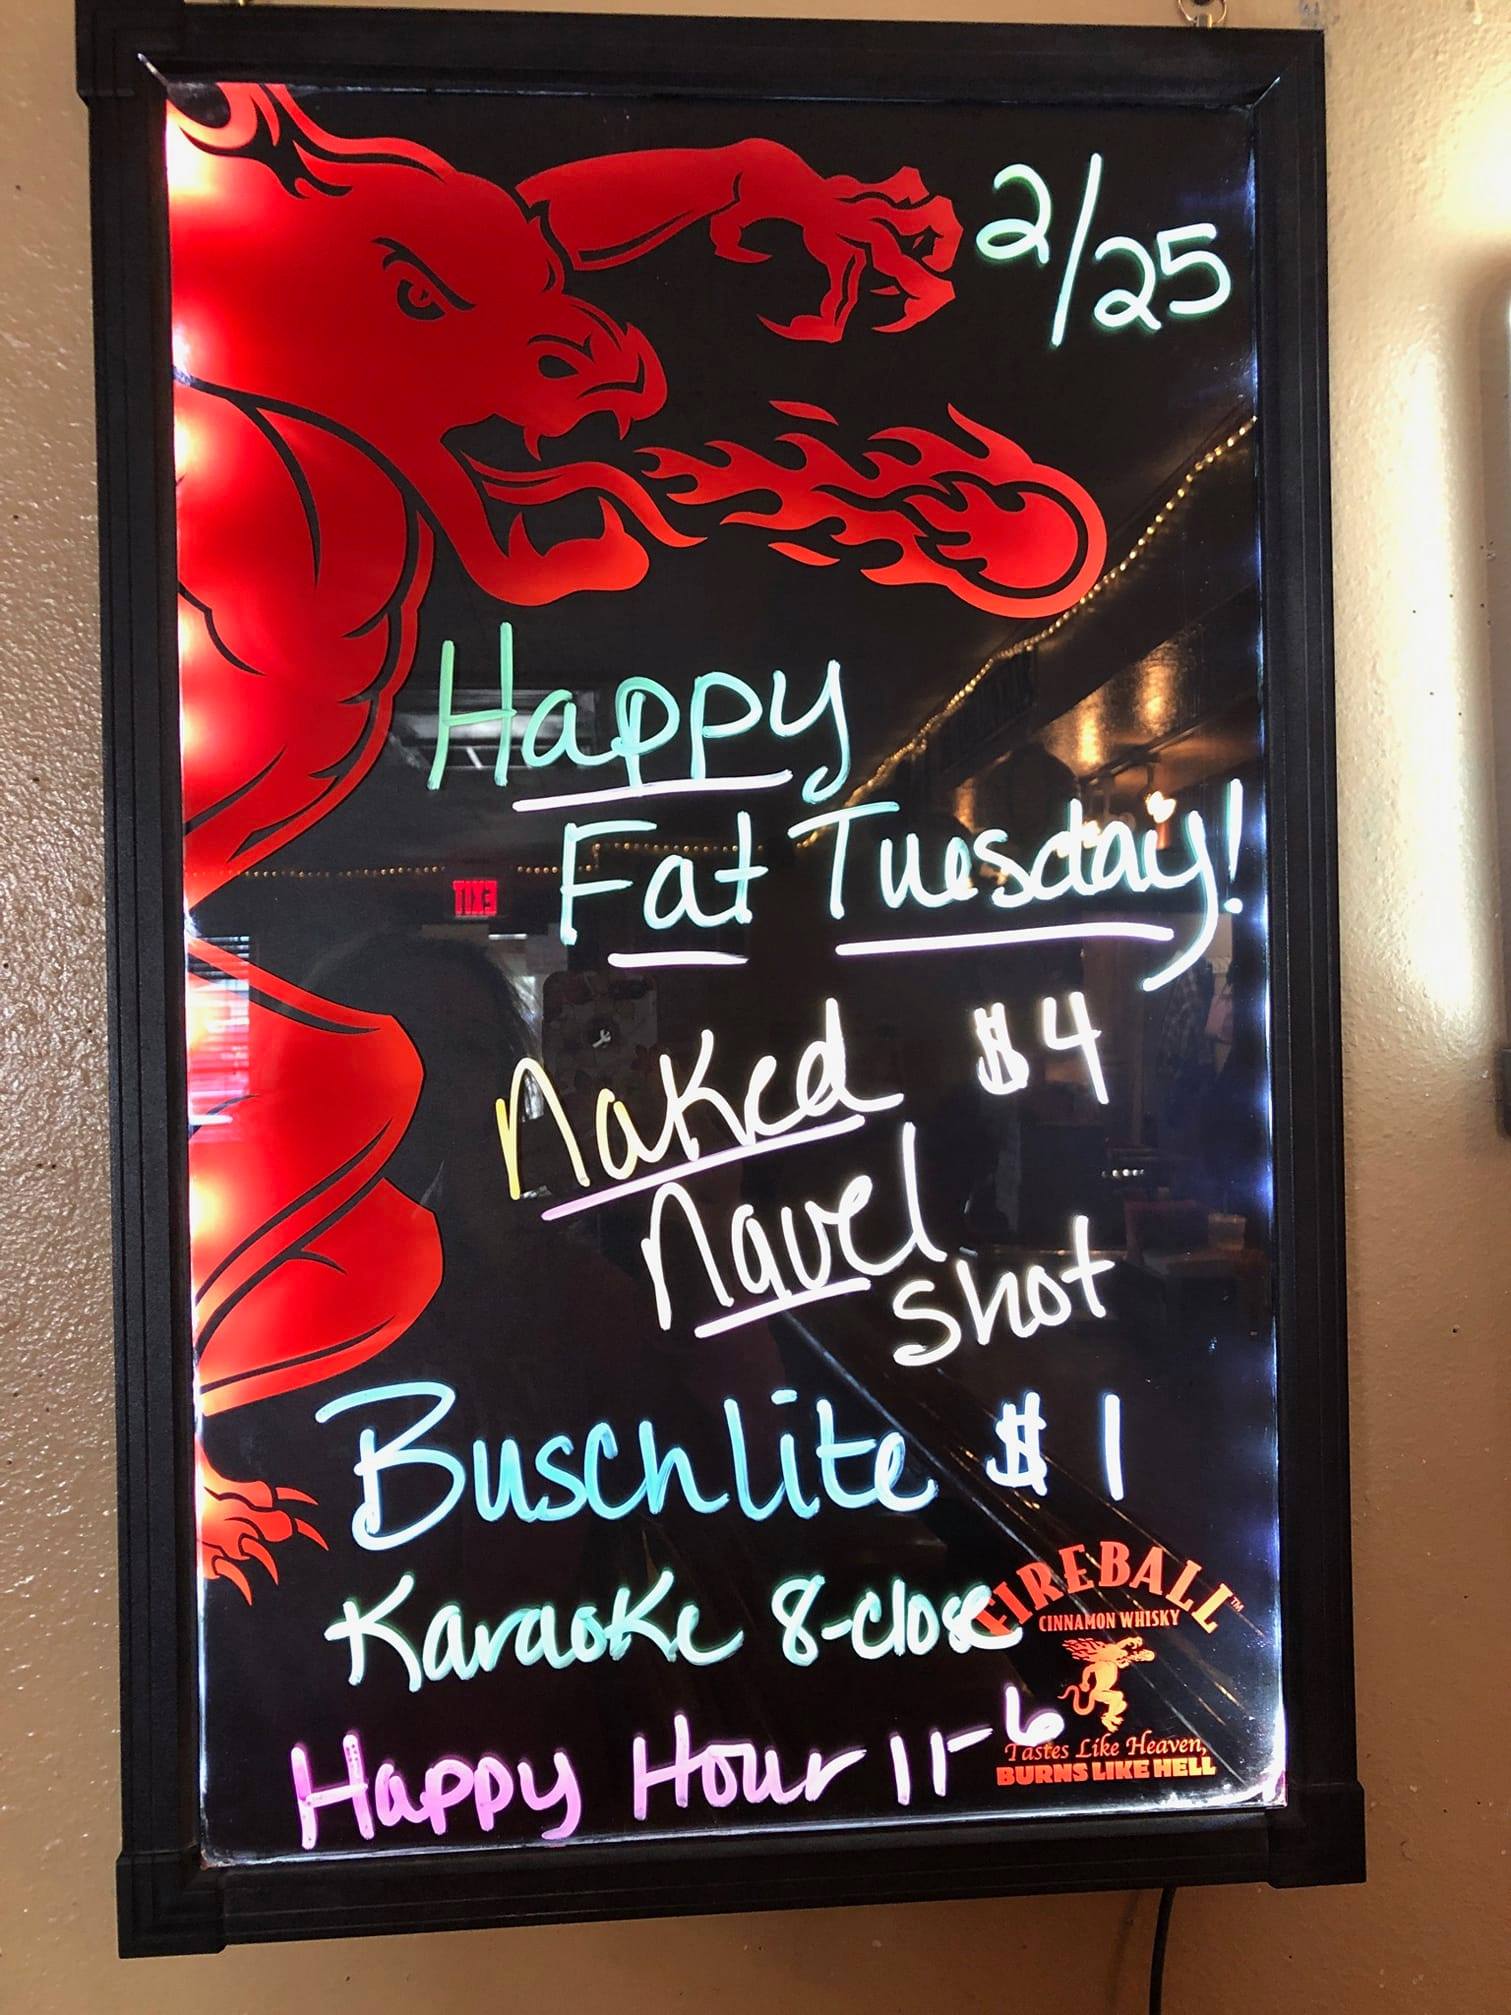 2/25
Happy
Fat Tuesday!
Naked $4
Navel
Shot
Busch lite $1
Karaoke 8-close
FIREBALL™
CINNAMON WHISKY
Happy Hour 11-6
Tastes Like Heaven,
BURNS LIKE HELL
EXIT